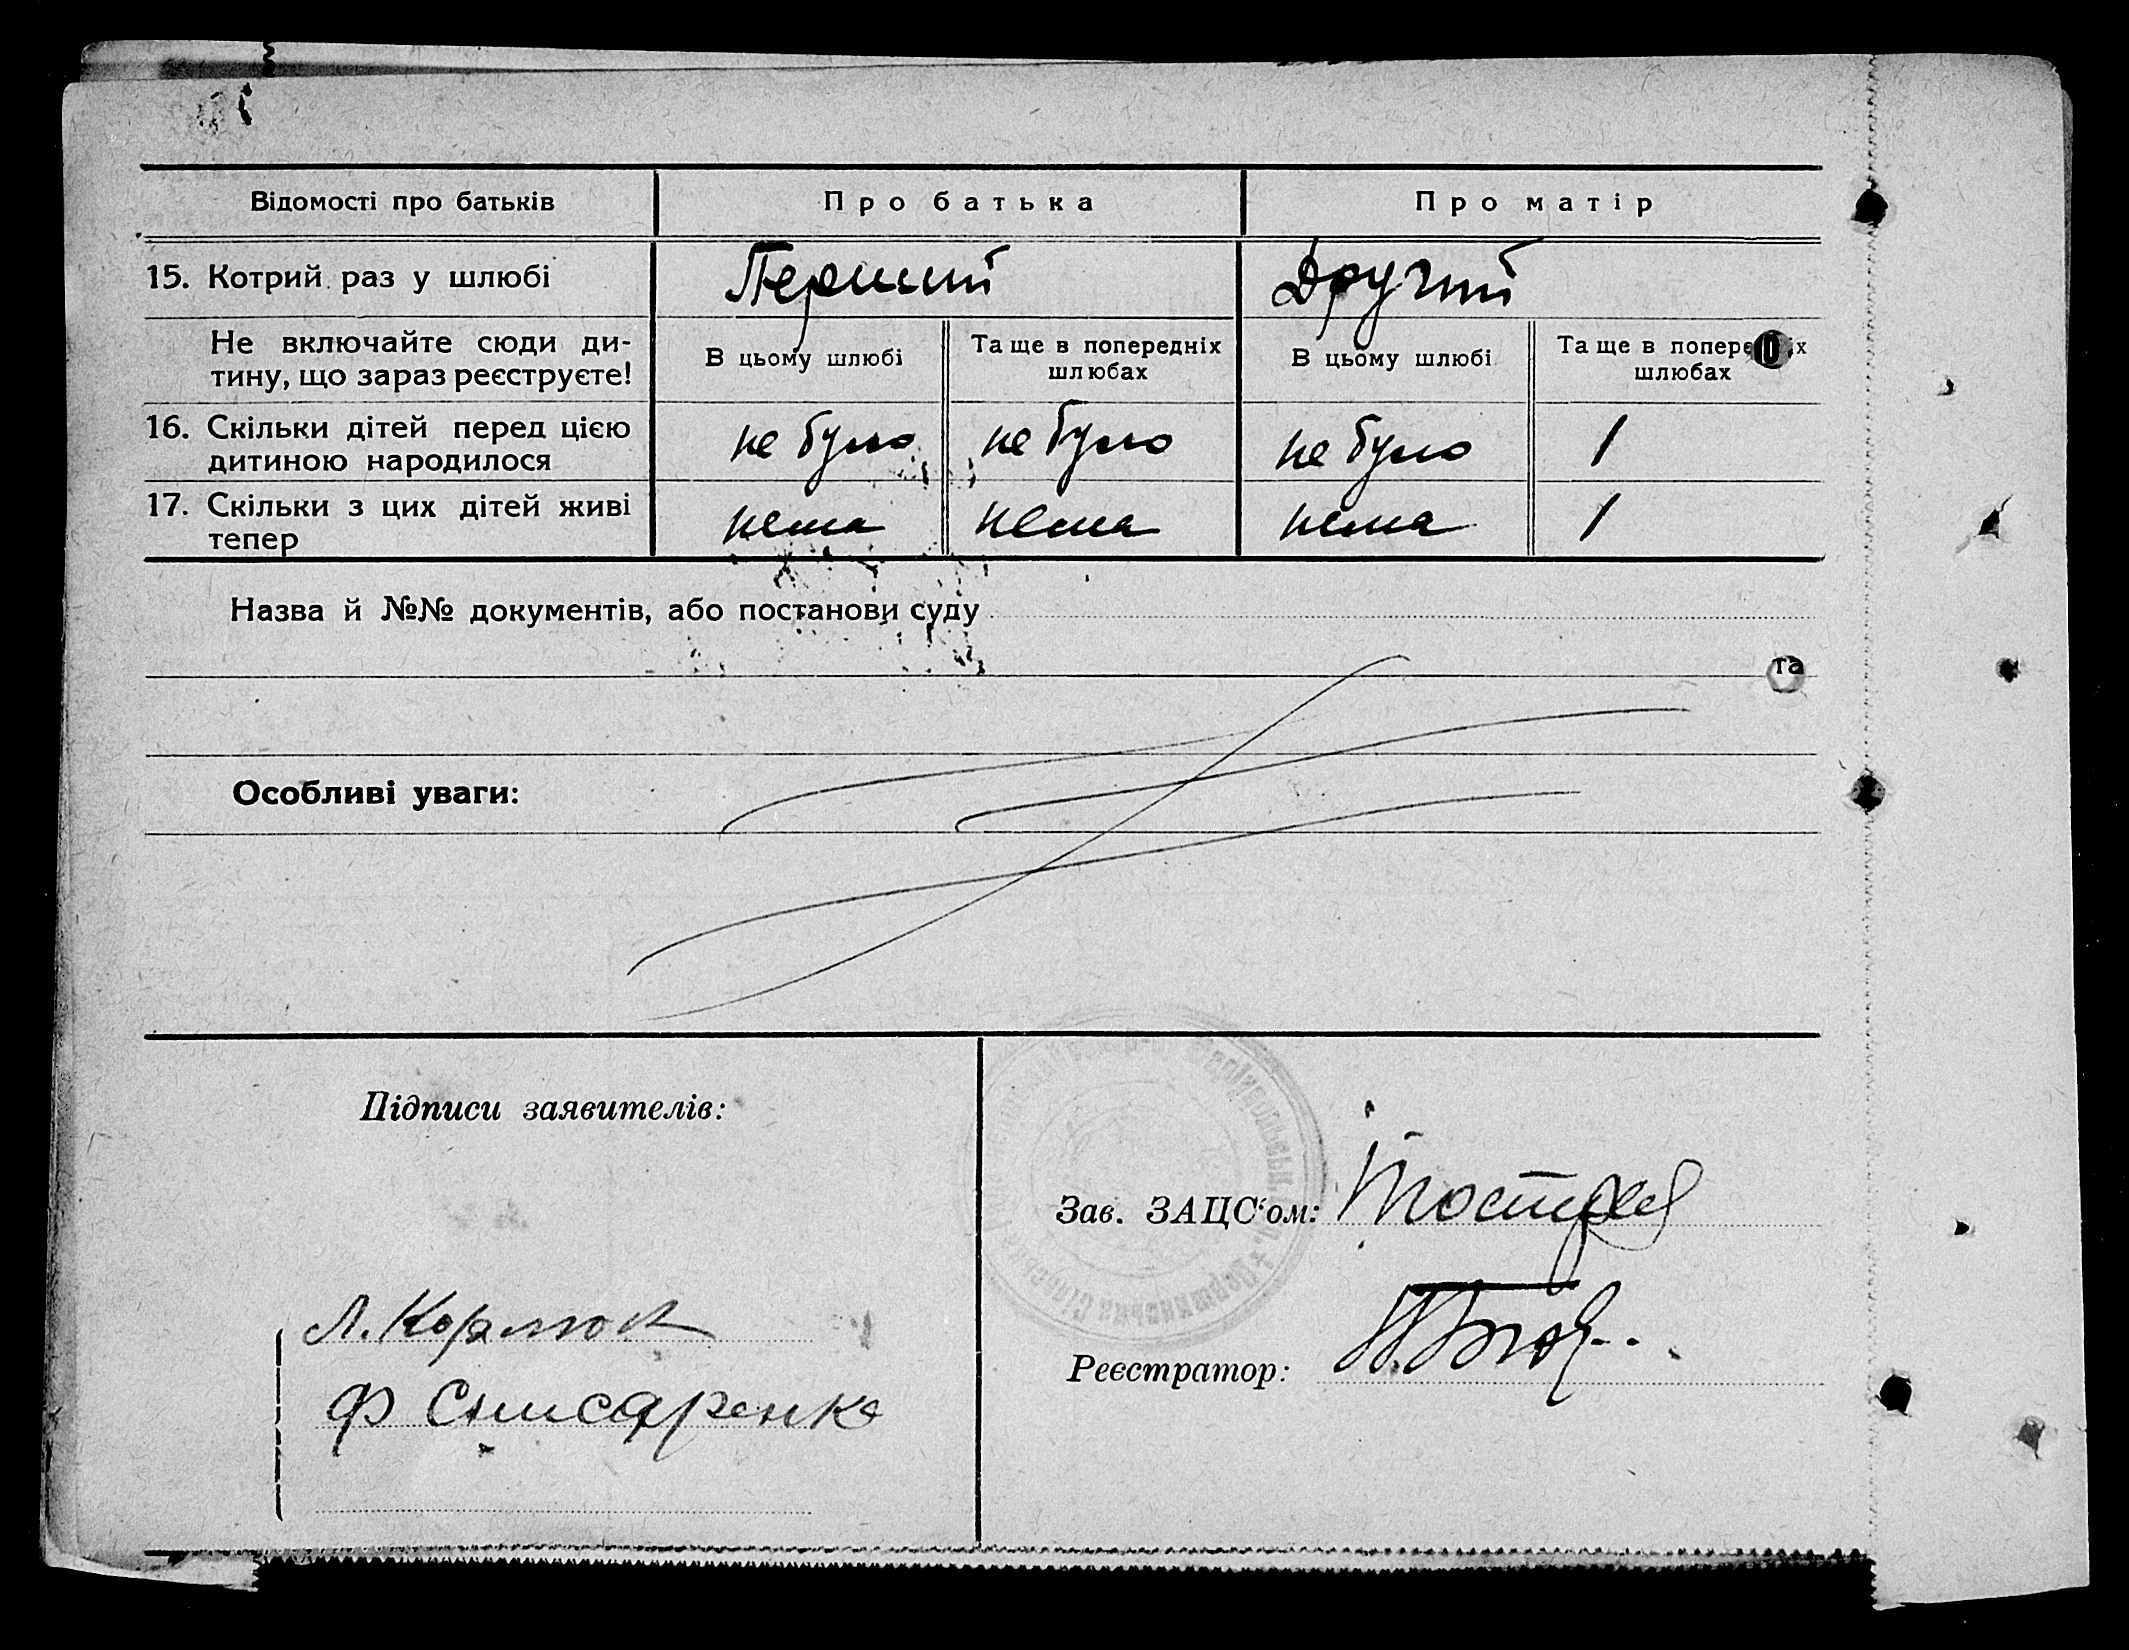 Відомості про батьків
Про батька
Про матір
15. Котрий раз у шлюбі
Перший
Другий
Не включайте сюди ди-
тину, що зараз реєструєте!
В цьому шлюбі
Та ще в попередніх
шлюбах
В цьому шлюбі
Та ще в попере
іх
шлюбах
16. Скільки дітей перед цією
дитиною народилося
не було
не було
не було
1
17. Скільки з цих дітей живі
тепер
нема
нема
нема
1
Назва й №№ документів, або постанови суду
та
Особливі уваги:
Підписи заявителів:
Зав. ЗАЦС'ом:
Л. Кормюк
Реєстратор:
Ф Снисаренко